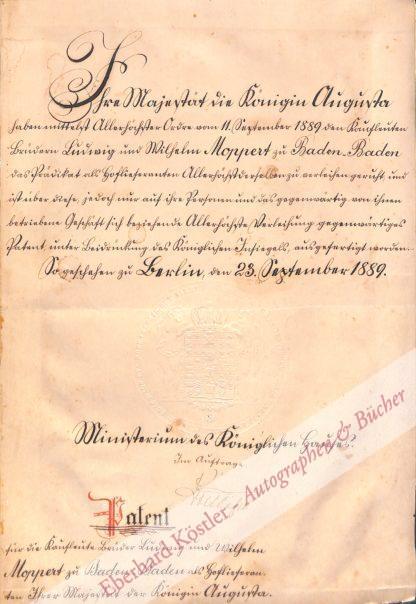 Ihre Majestät die Königin Augusta
haben mittelst Allerhöchster Ordre vom 11. September 1889 den Kaufleuten
Brüdern Ludwig und Wilhelm Moppert zu Baden-Baden
das Prädikat als Hoflieferanten Allerhöchstderselben zu verleihen geruht, und
ist über diese, jedoch nur auf ihre Personen und das gegenwärtig von ihnen
betriebene Geschäft sich beziehende Allerhöchste Verleihung gegenwärtiges
Patent, unter Beidrückung des Königlichen Insiegels, ausgefertigt worden.
So geschehen zu Berlin, den 23. September 1889.
Ministerium des Königlichen Hauses.
Im Auftrage
Patent
für die Kaufleute Brüder Ludwig und Wilhelm
Moppert zu Baden-Baden als Hoflieferan-
ten Ihrer Majestät der Königin Augusta.
Eberhard Köstler - Autographen & Bücher